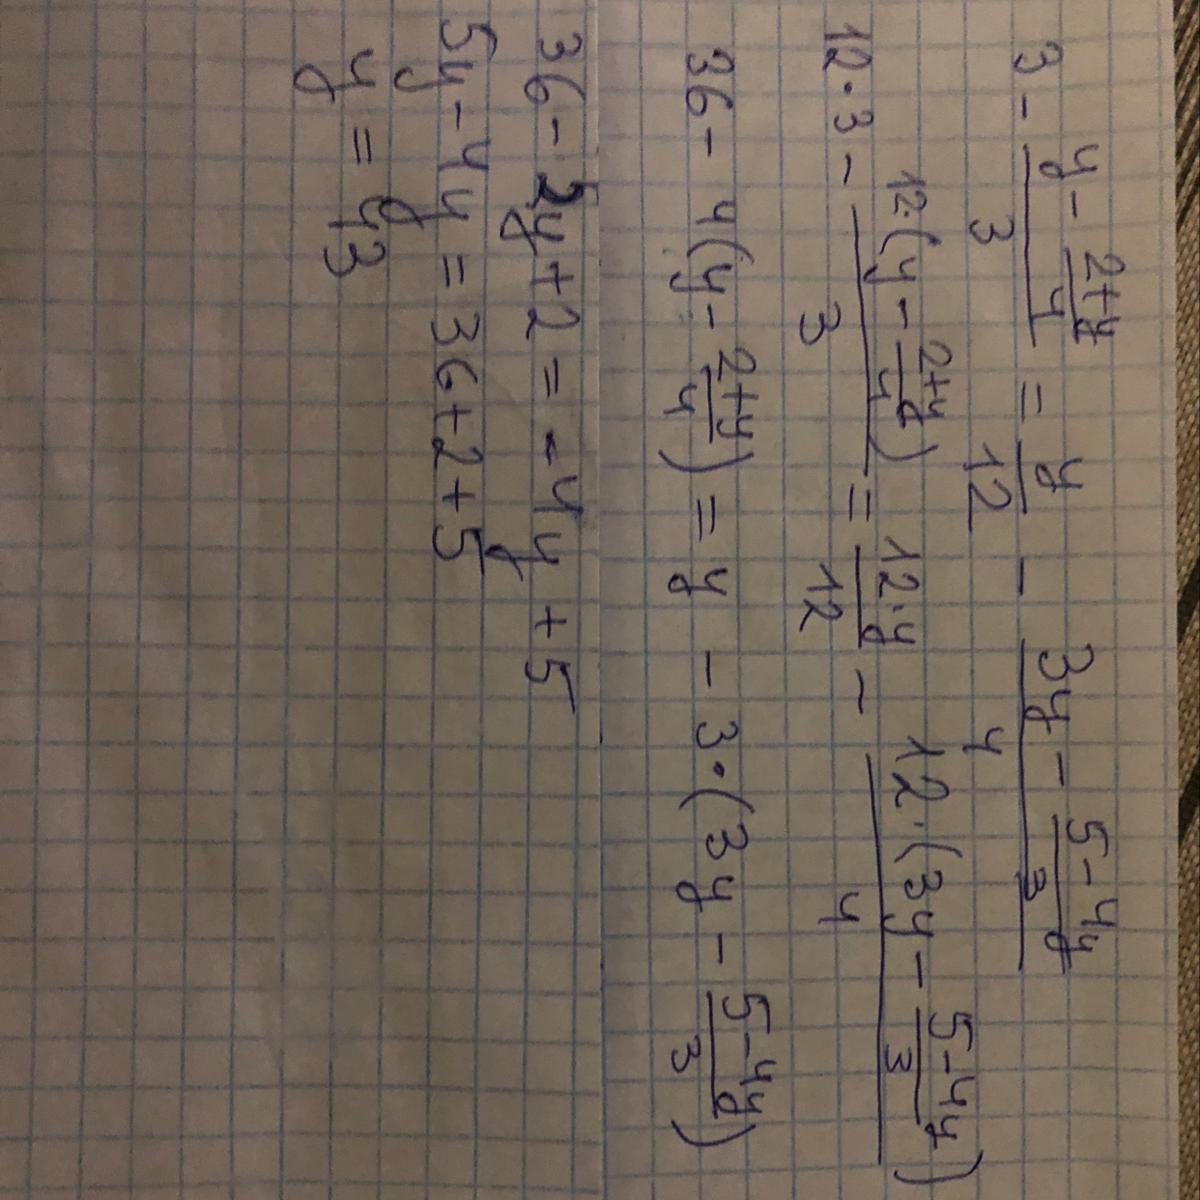 3 - (y - (2+y)/4)/3 = y/12 - (3y - (5-4y)/3)/4
12·3 - 12·(y - (2+y)/4)/3 = 12·y/12 - 12·(3y - (5-4y)/3)/4
36 - 4(y - (2+y)/4) = y - 3·(3y - (5-4y)/3)
36 - 5y + 2 = -4y + 5
5y - 4y = 36 + 2 + 5
y = 43